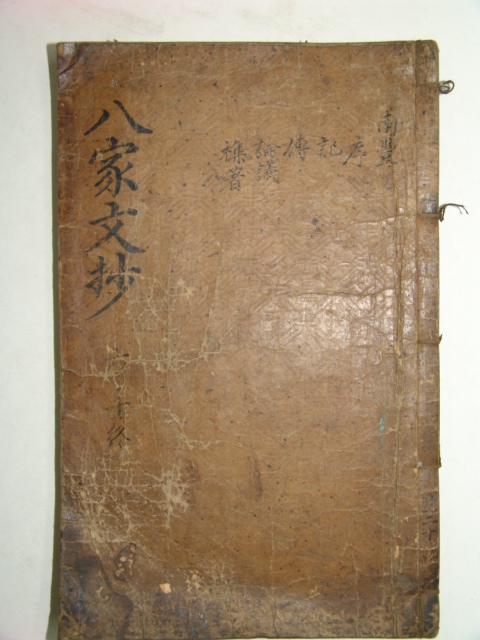 南豐
序
記
傳
論議
雜著
八家文抄